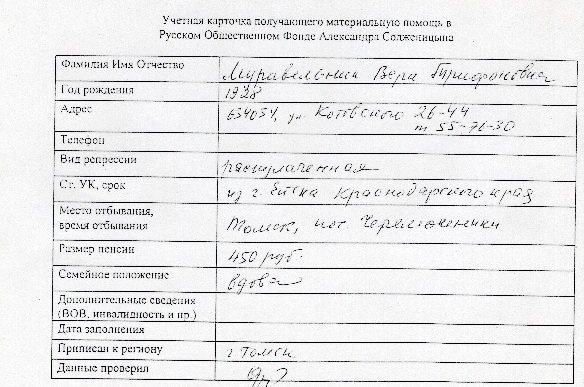 Учетная карточка получающего материальную помощь в
Русском Общественном Фонде Александра Солженицына
Фамилия Имя Отчество Вера
Год рождения 1928
Адрес 634054, ул. Котовского 26-44
т 55-76-30
Телефон
Вид репрессии раскулаченная
Ст. УК, срок из г. Ейска Краснодарского края
Место отбывания,
время отбывания Томск, пос Черемошники
Размер пенсии 450 руб.
Семейное положение вдова
Дополнительные сведения
(ВОВ, инвалидность и пр.)
Дата заполнения
Приписан к региону г Томск
Данные проверил